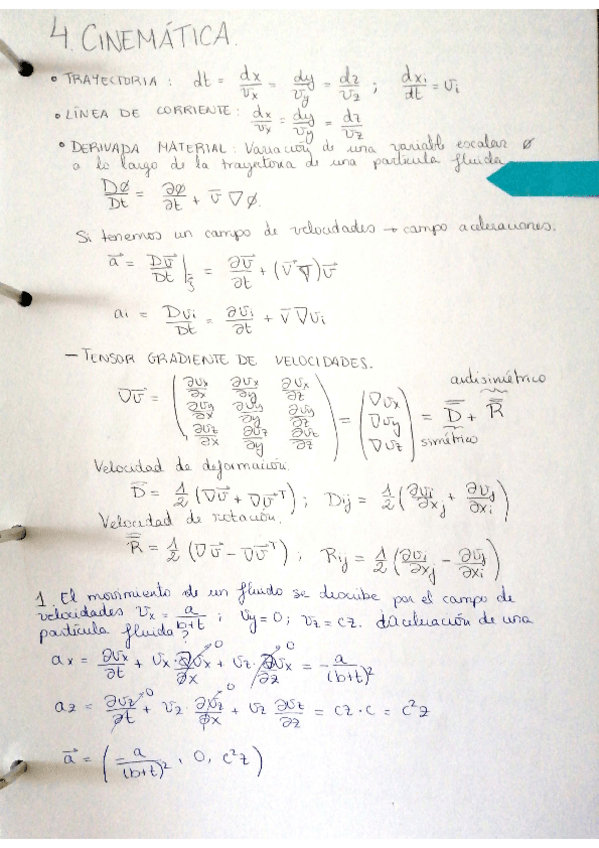 4. CINEMÁTICA.
• TRAYECTORIA: dt = dx/vx = dy/vy = dz/vz ; dxi/dt = vi
• LÍNEA DE CORRIENTE: dx/vx = dy/vy = dz/vz
• DERIVADA MATERIAL: Variación de una variable escalar ø
a lo largo de la trayectoria de una partícula fluida
Dø/Dt = ∂ø/∂t + v̄ ∇ø.
Si tenemos un campo de velocidades → campo aceleraciones.
a⃗ = Dv⃗/Dt |ξ = ∂v̄/∂t + (v⃗ ∇)v⃗
ai = Dvi/Dt = ∂vi/∂t + v̄ ∇vi
- TENSOR GRADIENTE DE VELOCIDADES.
antisimétrico
∇v̄ = (∂vx/∂x ∂vx/∂y ∂vx/∂z; ∂vy/∂x ∂vy/∂y ∂vy/∂z; ∂vz/∂x ∂vz/∂y ∂vz/∂z) = (∇vx; ∇vy; ∇vz) = D̿ + R̿
simétrico
Velocidad de deformación.
D̿ = 1/2 (∇v̄ + ∇v̄ᵀ) ; Dij = 1/2 (∂vi/∂xj + ∂vj/∂xi)
Velocidad de rotación.
R̿ = 1/2 (∇v̄ - ∇v̄ᵀ) ; Rij = 1/2 (∂vi/∂xj - ∂vj/∂xi)
1. El movimiento de un fluido se describe por el campo de
velocidades vx = a/(b+t) ; vy = 0 ; vz = cz. ¿aceleración de una
partícula fluida?
ax = ∂vx/∂t + vx · ∂vx/∂x→0 + vz · ∂vx/∂z→0 = - a/(b+t)²
az = ∂vz/∂t→0 + vz · ∂vz/∂x→0 + vz ∂vz/∂z = cz · c = c²z
a⃗ = (- a/(b+t)² , 0, c²z)